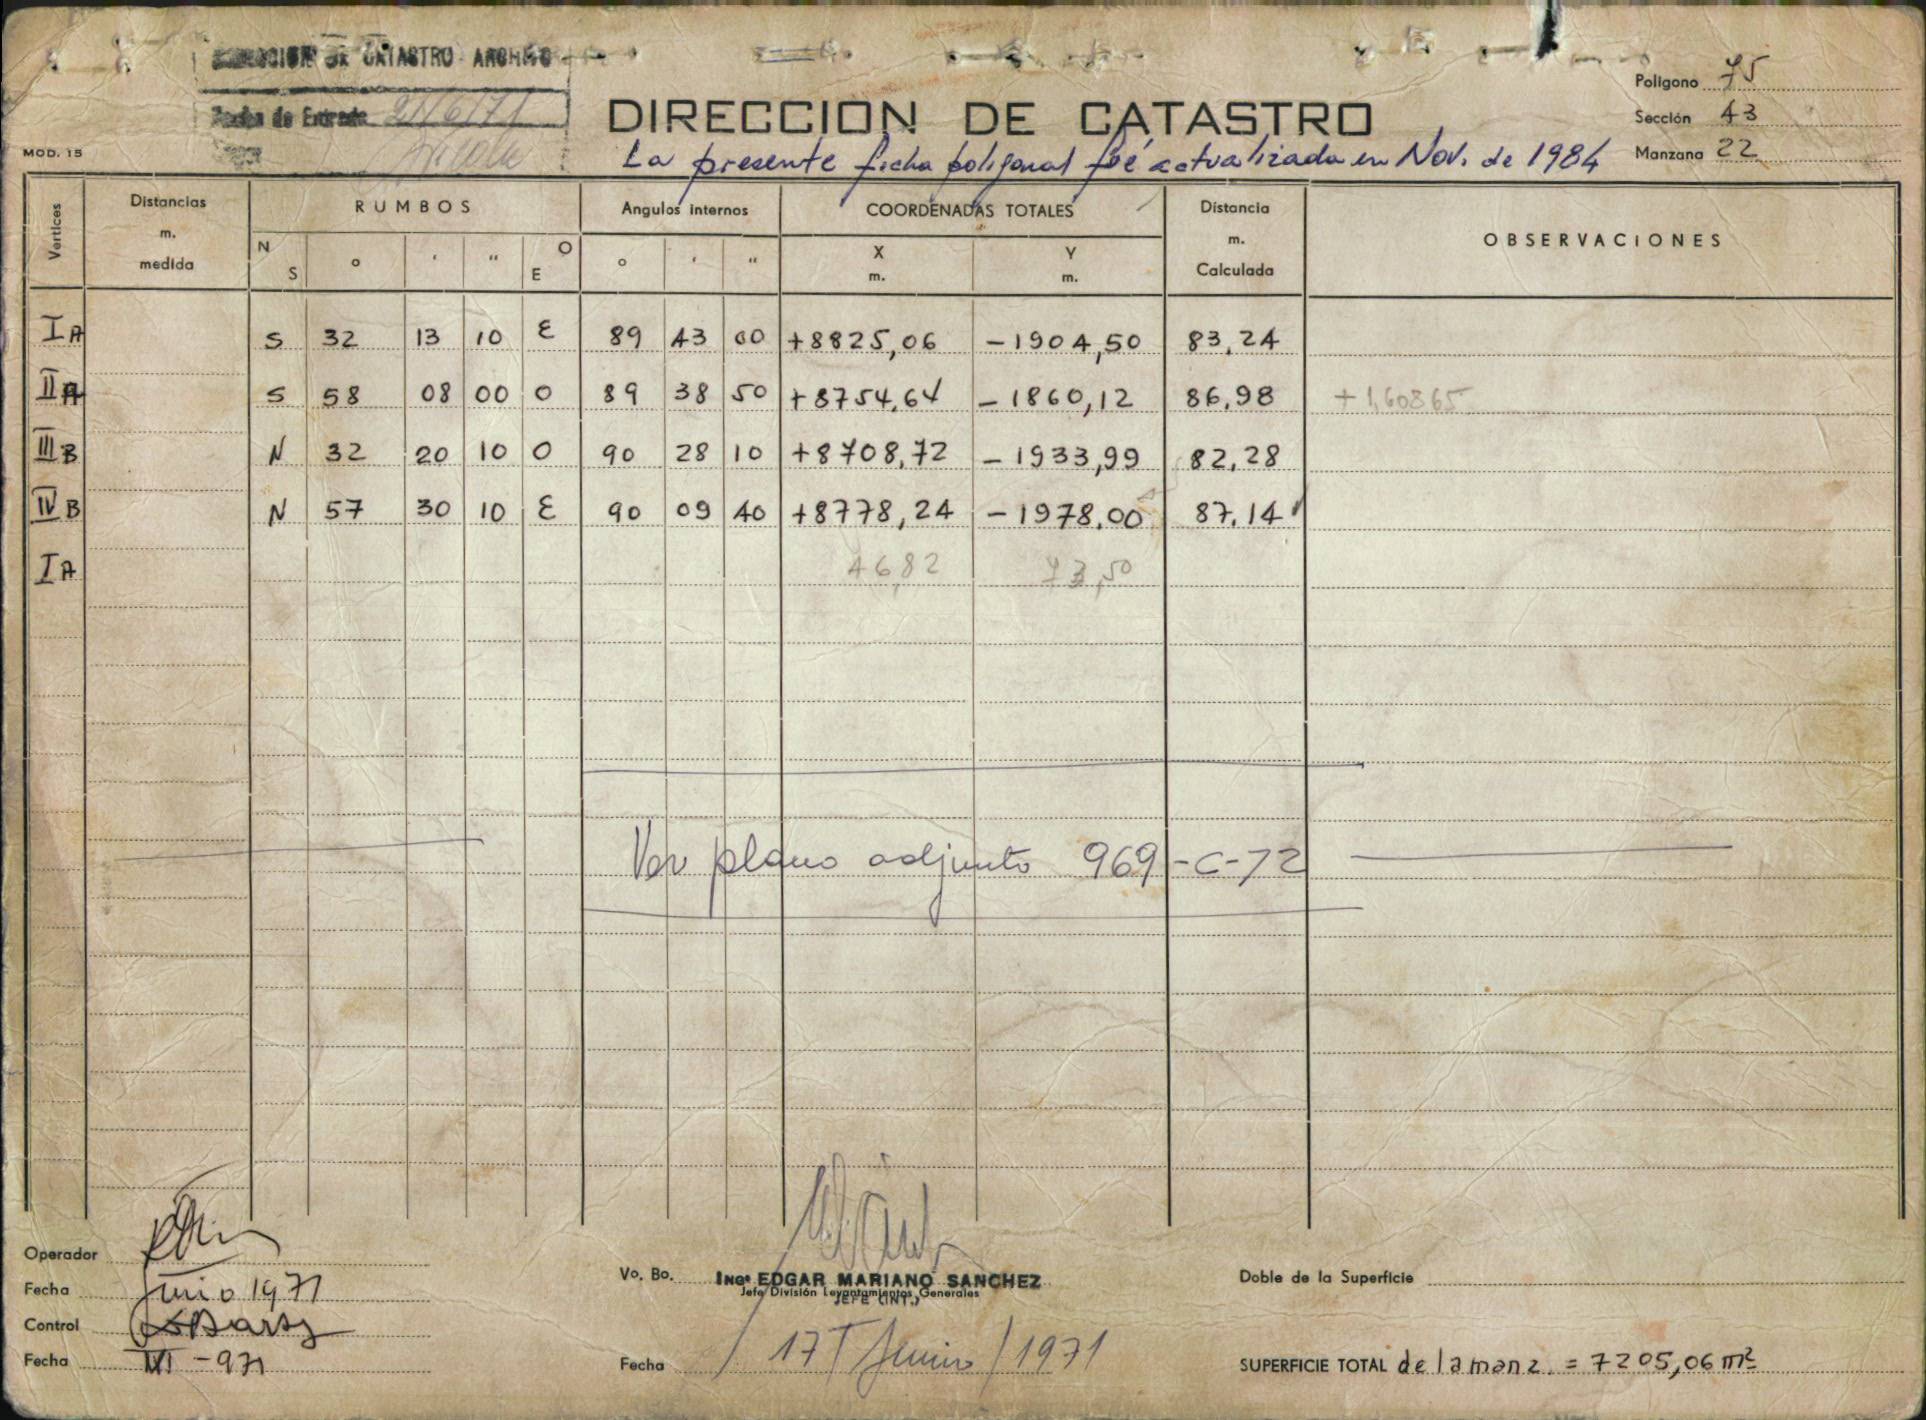 DIRECCION DE CATASTRO ARCHIVO
Fecha de Entrada 21/6/71
MOD. 15
DIRECCION DE CATASTRO
La presente ficha poligonal fué actualizada en Nov. de 1984
Poligono 75
Sección 43
Manzana 22
Vertices Distancias m. medida RUMBOS Angulos internos COORDENADAS TOTALES Distancia m. Calculada OBSERVACIONES
N S o ' " O E o ' " X m. Y m.
IA S 32 13 10 E 89 43 00 +8825,06 -1904,50 83,24
IIA S 58 08 00 O 89 38 50 +8754,64 -1860,12 86,98 +1,60865
IIIB N 32 20 10 O 90 28 10 +8708,72 -1933,99 82,28
IVB N 57 30 10 E 90 09 40 +8778,24 -1978,00 87,14
IA 46,82 73,50
Ver plano adjunto 969-C-72
Operador
Fecha Junio 1971
Control
Fecha VI-971
Vo. Bo. Ingº EDGAR MARIANO SANCHEZ
Jefe División Levantamientos Generales
JEFE (INT.)
Fecha 17 / Junio / 1971
Doble de la Superficie
SUPERFICIE TOTAL de la manz. = 7205,06 m²